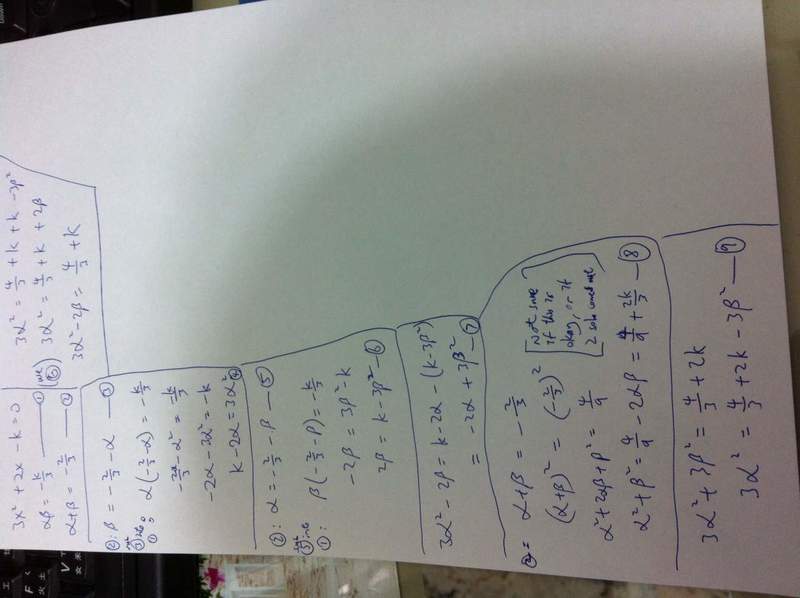 3x² + 2x - k = 0
αβ = -k/3 —— ①
α+β = -2/3 —— ②
②: β = -2/3 - α —— ③
sub ③ into ①: α(-2/3 - α) = -k/3
-2α/3 - α² = -k/3
-2α - 3α² = -k
k - 2α = 3α² ④
②: α = -2/3 - β —— ⑤
sub ⑤ into ①: β(-2/3 - β) = -k/3
-2β = 3β² - k
2β = k - 3β² —⑥
3α² - 2β = k - 2α - (k - 3β²)
= -2α + 3β² —⑦
②: α+β = -2/3
(α+β)² = (-2/3)² [Not sure if this is okay, or if
α² + 2αβ + β² = 4/9
α² + β² = 4/9 - 2αβ = 4/9 + 2k/3 —⑧
3α² + 3β² = 4/3 + 2k
3α² = 4/3 + 2k - 3β² —⑨
3α² = 4/3 + k + k - 3β²
(use ⑥) 3α² = 4/3 + k + 2β
3α² - 2β = 4/3 + k